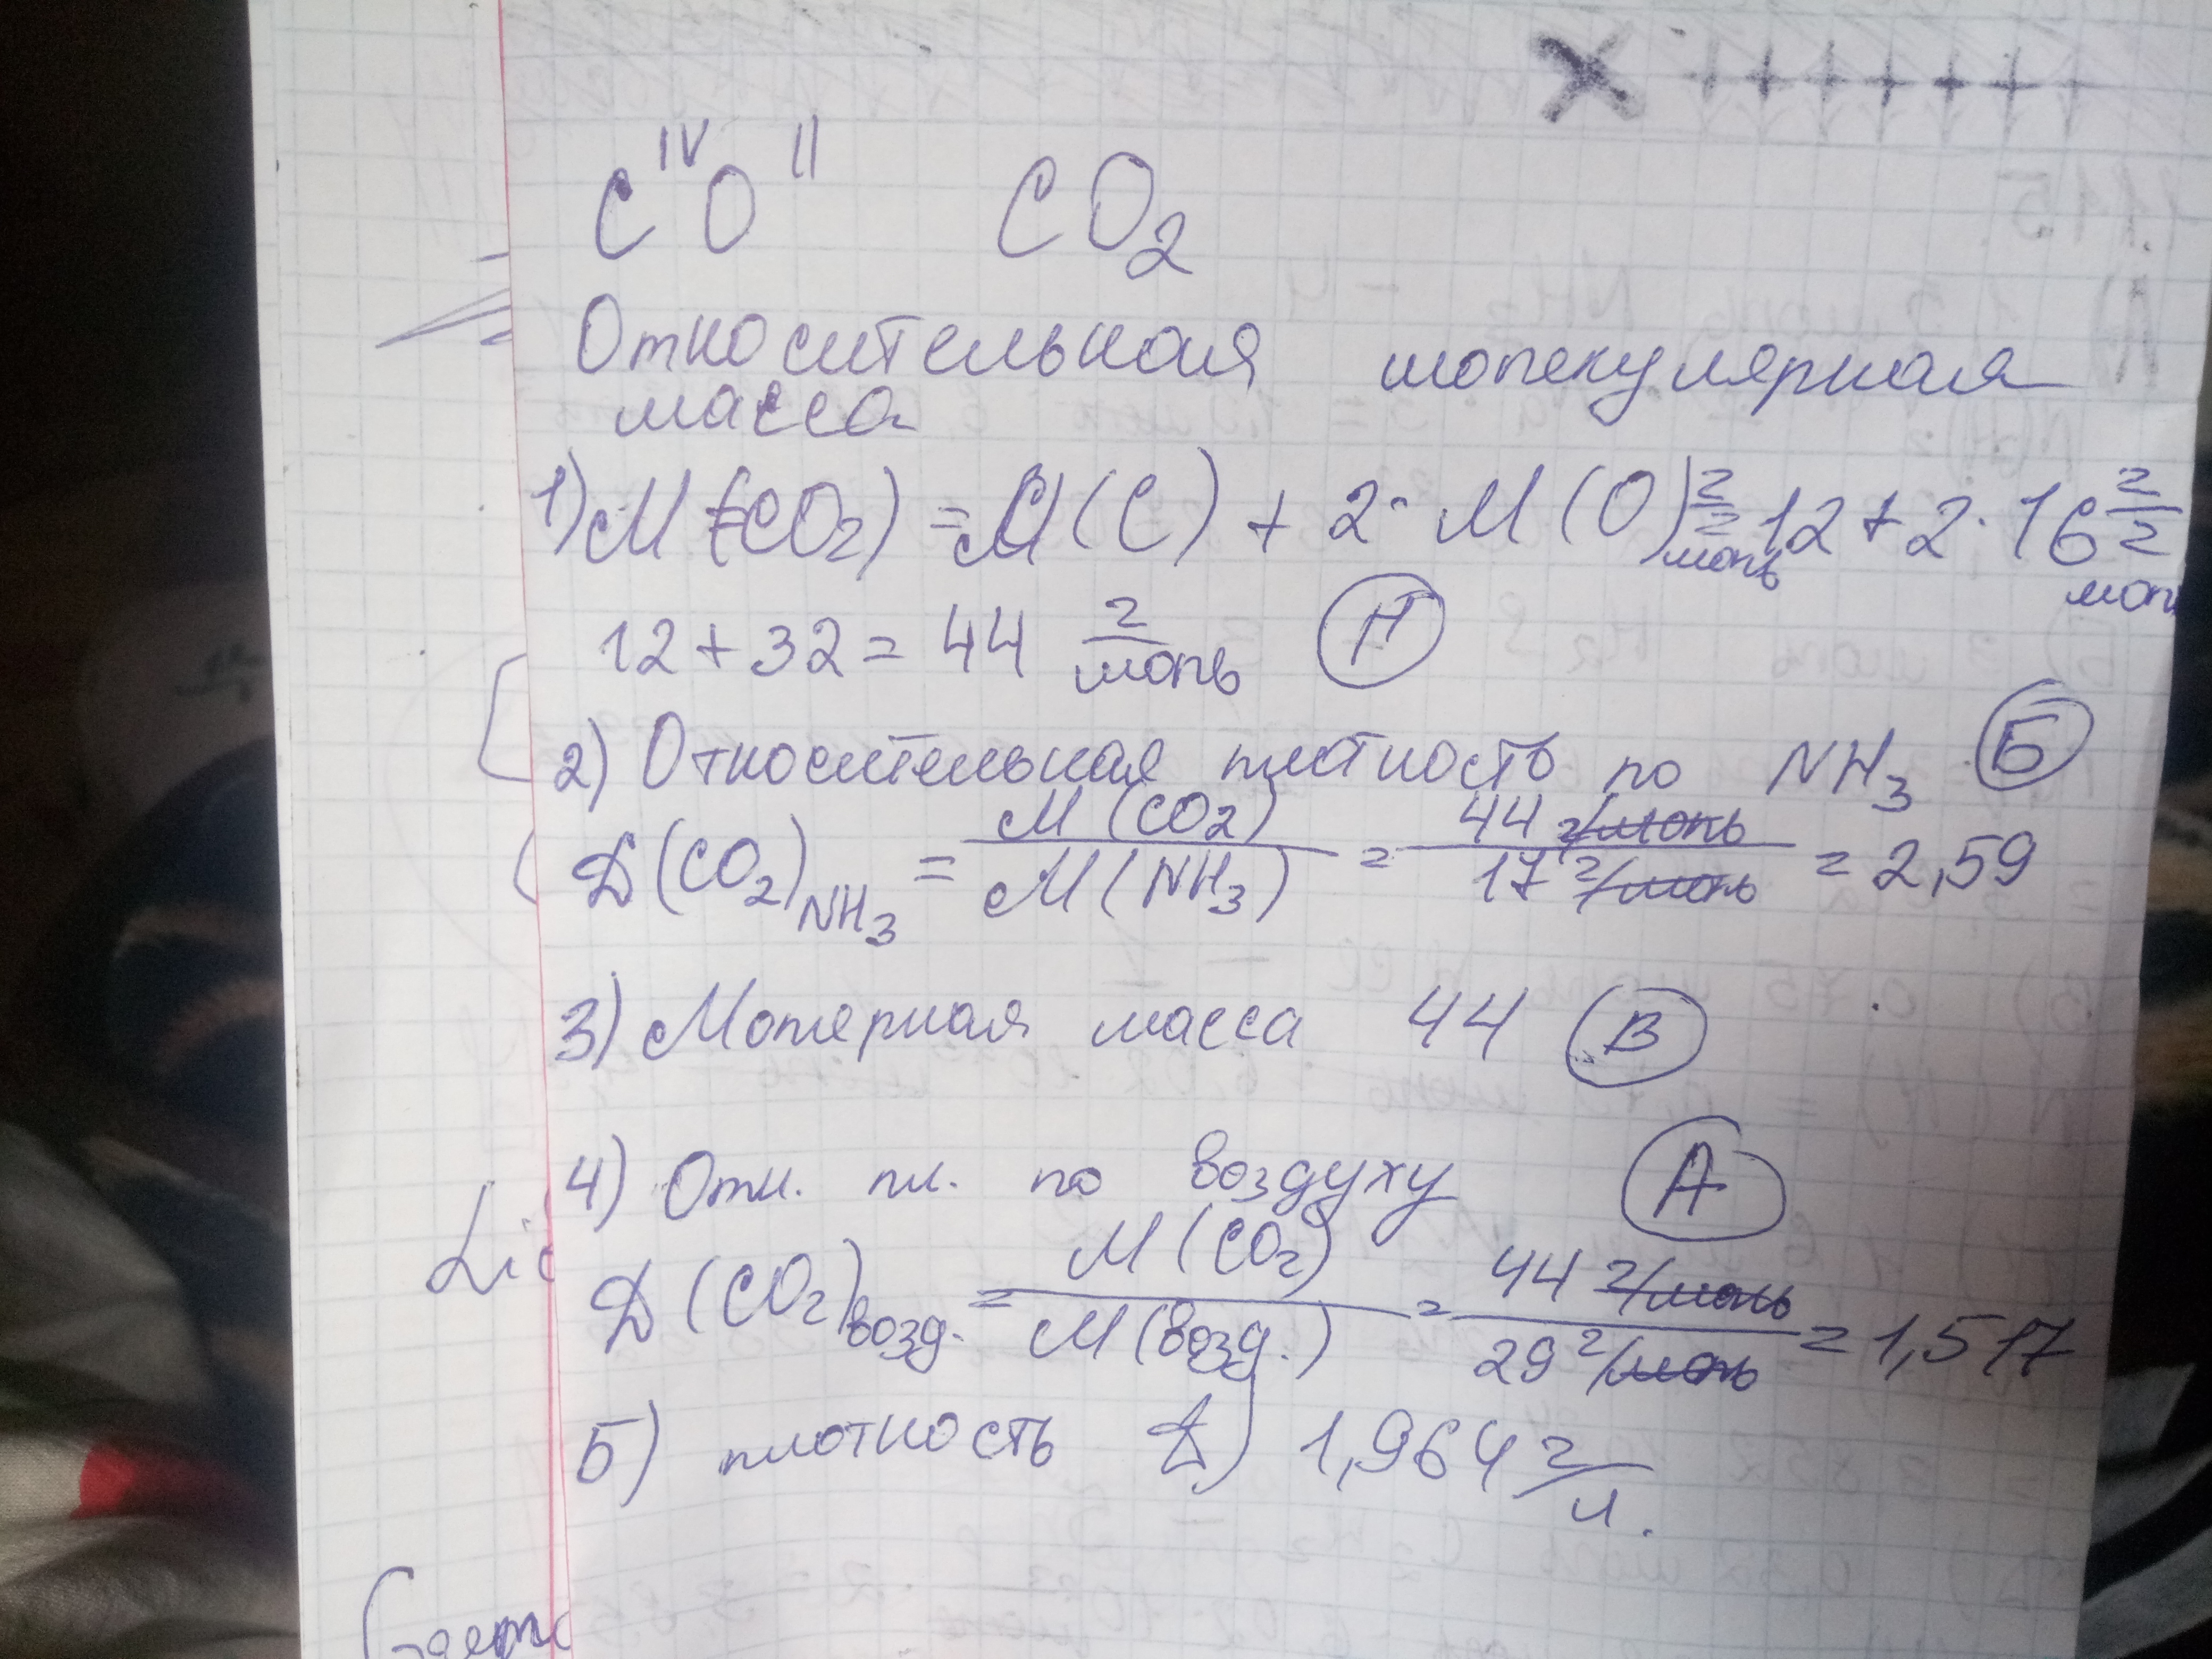 C IV O II CO2
Относительная молекулярная
масса
1) M (CO2) = M (C) + 2· M (O) г/моль = 12 + 2·16 г/моль
12 + 32 = 44 г/моль Н
2) Относительная плотность по NH3 Б
D(CO2)NH3 = M (CO2) / M (NH3) = 44 г/моль / 17 г/моль = 2,59
3) Молярная масса 44 В
4) Отн. пл. по воздуху А
D (CO2) возд. = M (CO2) / M (возд.) = 44 г/моль / 29 г/моль = 1,517
5) плотность Д) 1,964 г/л.